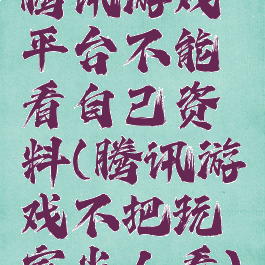 腾讯游戏
平台不能
看自己资
料(腾讯游
戏不把玩
家当人看)